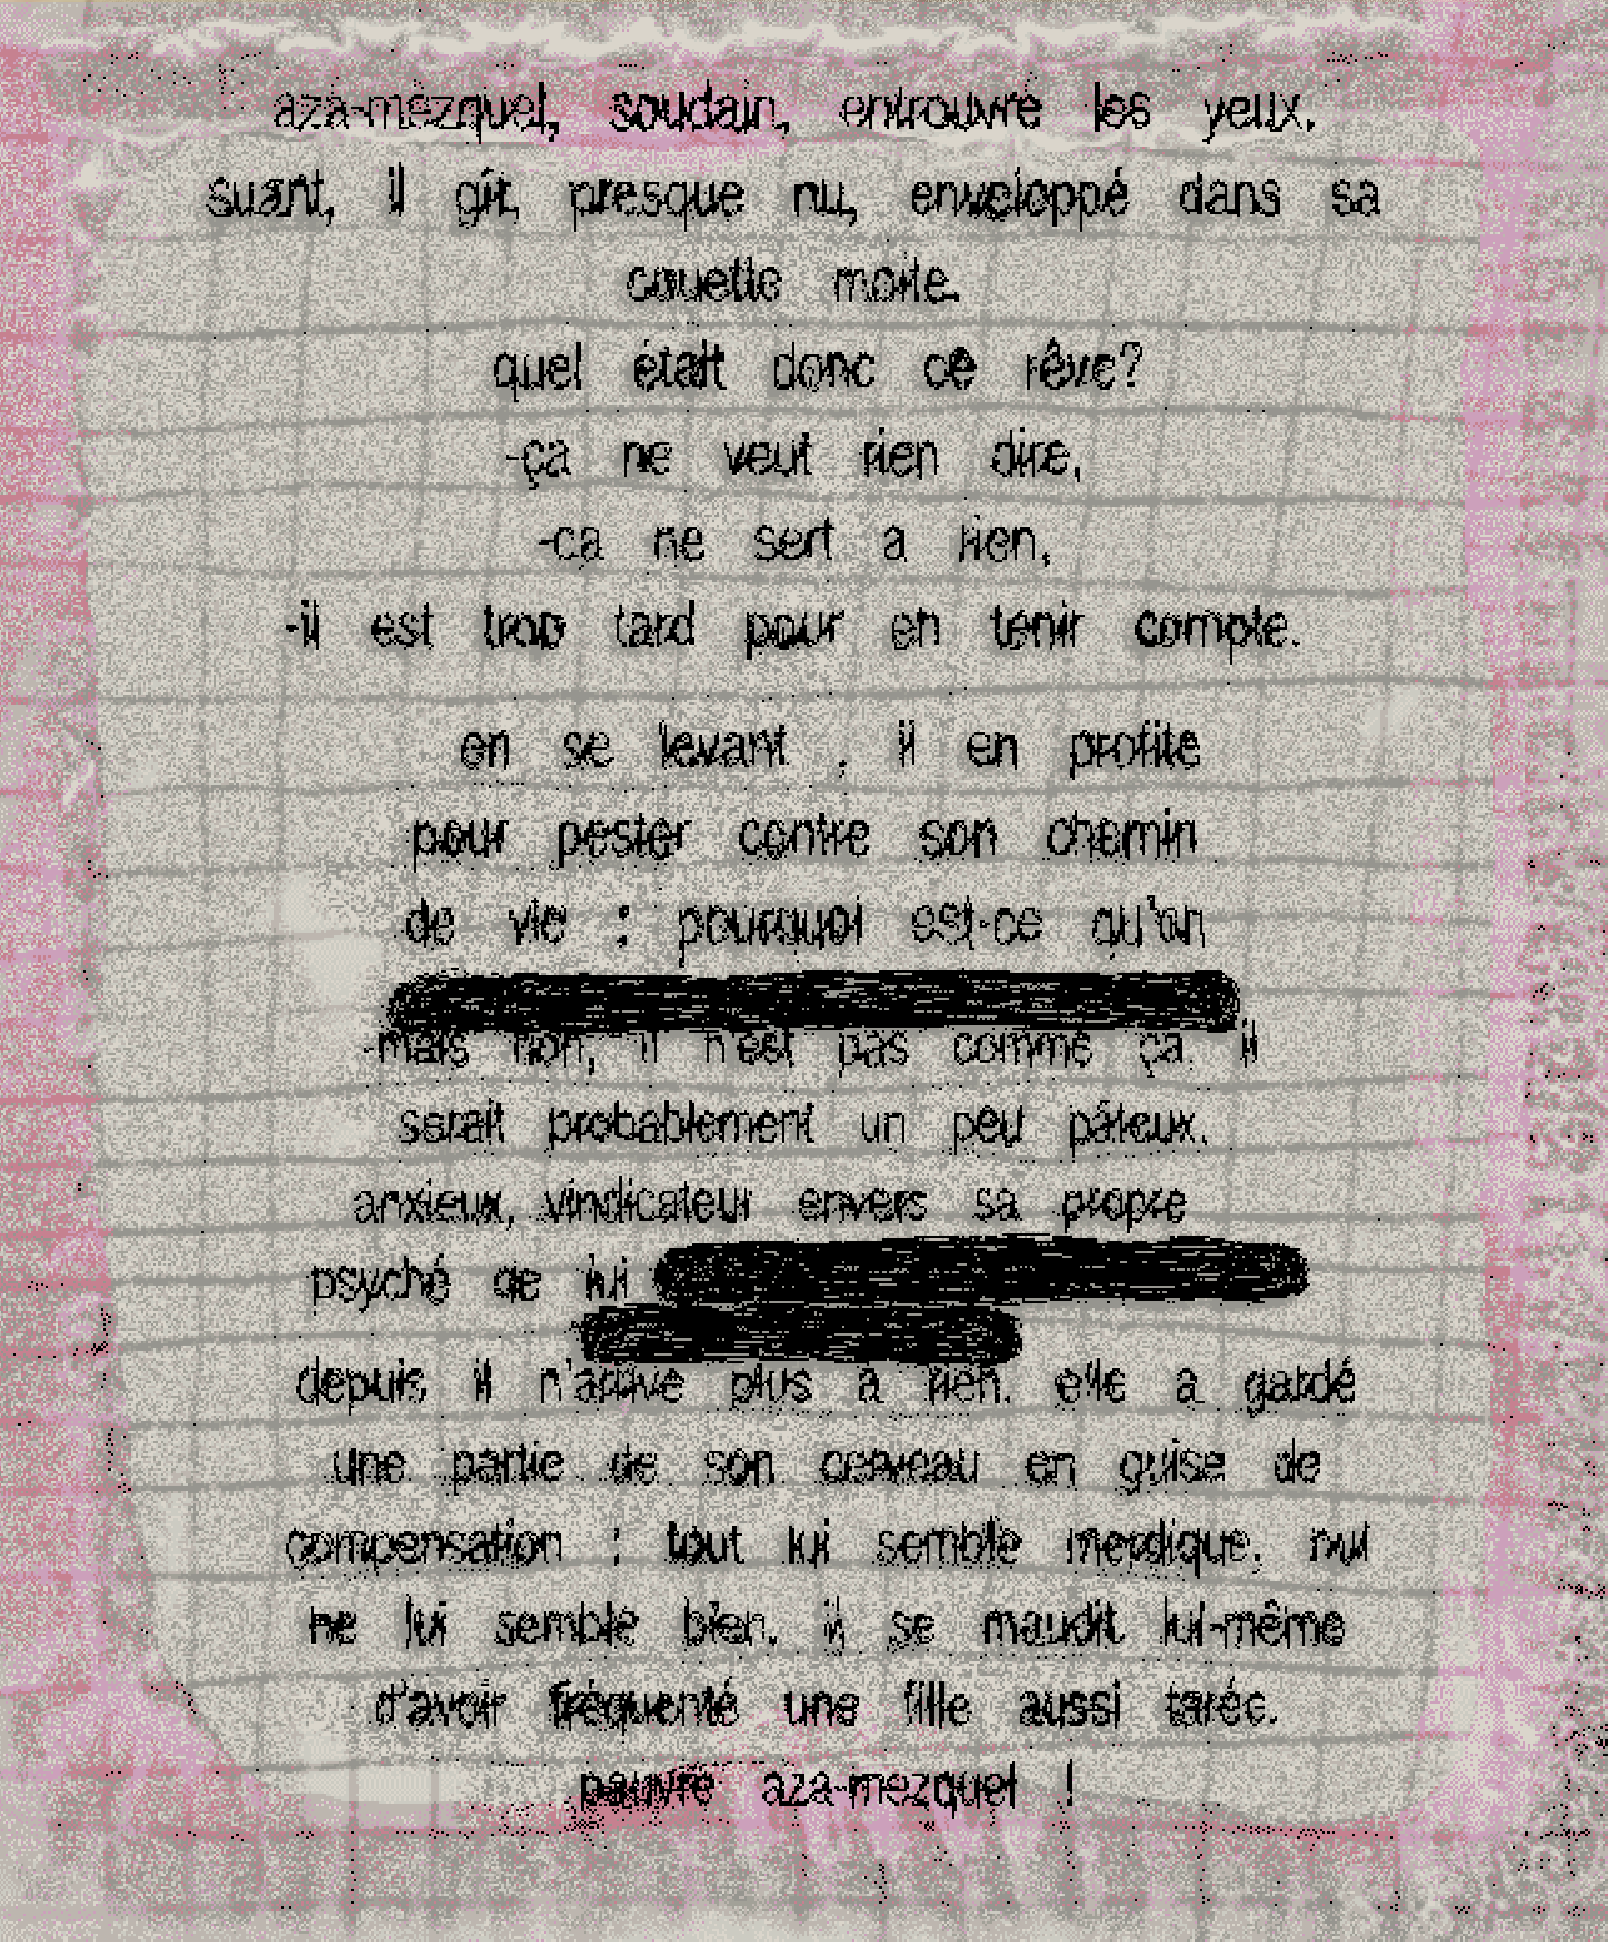 aza-mézquel, soudain, entrouvre les yeux.
suant, il gît, presque nu, enveloppé dans sa
couette moite.
quel était donc ce rêve?
-ça ne veut rien dire,
-ca ne sert a rien,
-il est trop tard pour en tenir compte.
en se levant , il en profite
pour pester contre son chemin
de vie : pourquoi est-ce qu'on
-mais non, il n'est pas comme ça. il
serait probablement un peu pâteux.
anxieux, vindicateur envers sa propre
psyché de lui
depuis il n'arrive plus a rien. elle a gardé
une partie de son cerveau en guise de
compensation : tout lui semble merdique. nul
ne lui semble bien. il se maudit lui-même
d'avoir fréquenté une fille aussi tarée.
pauvre aza-mezquel !